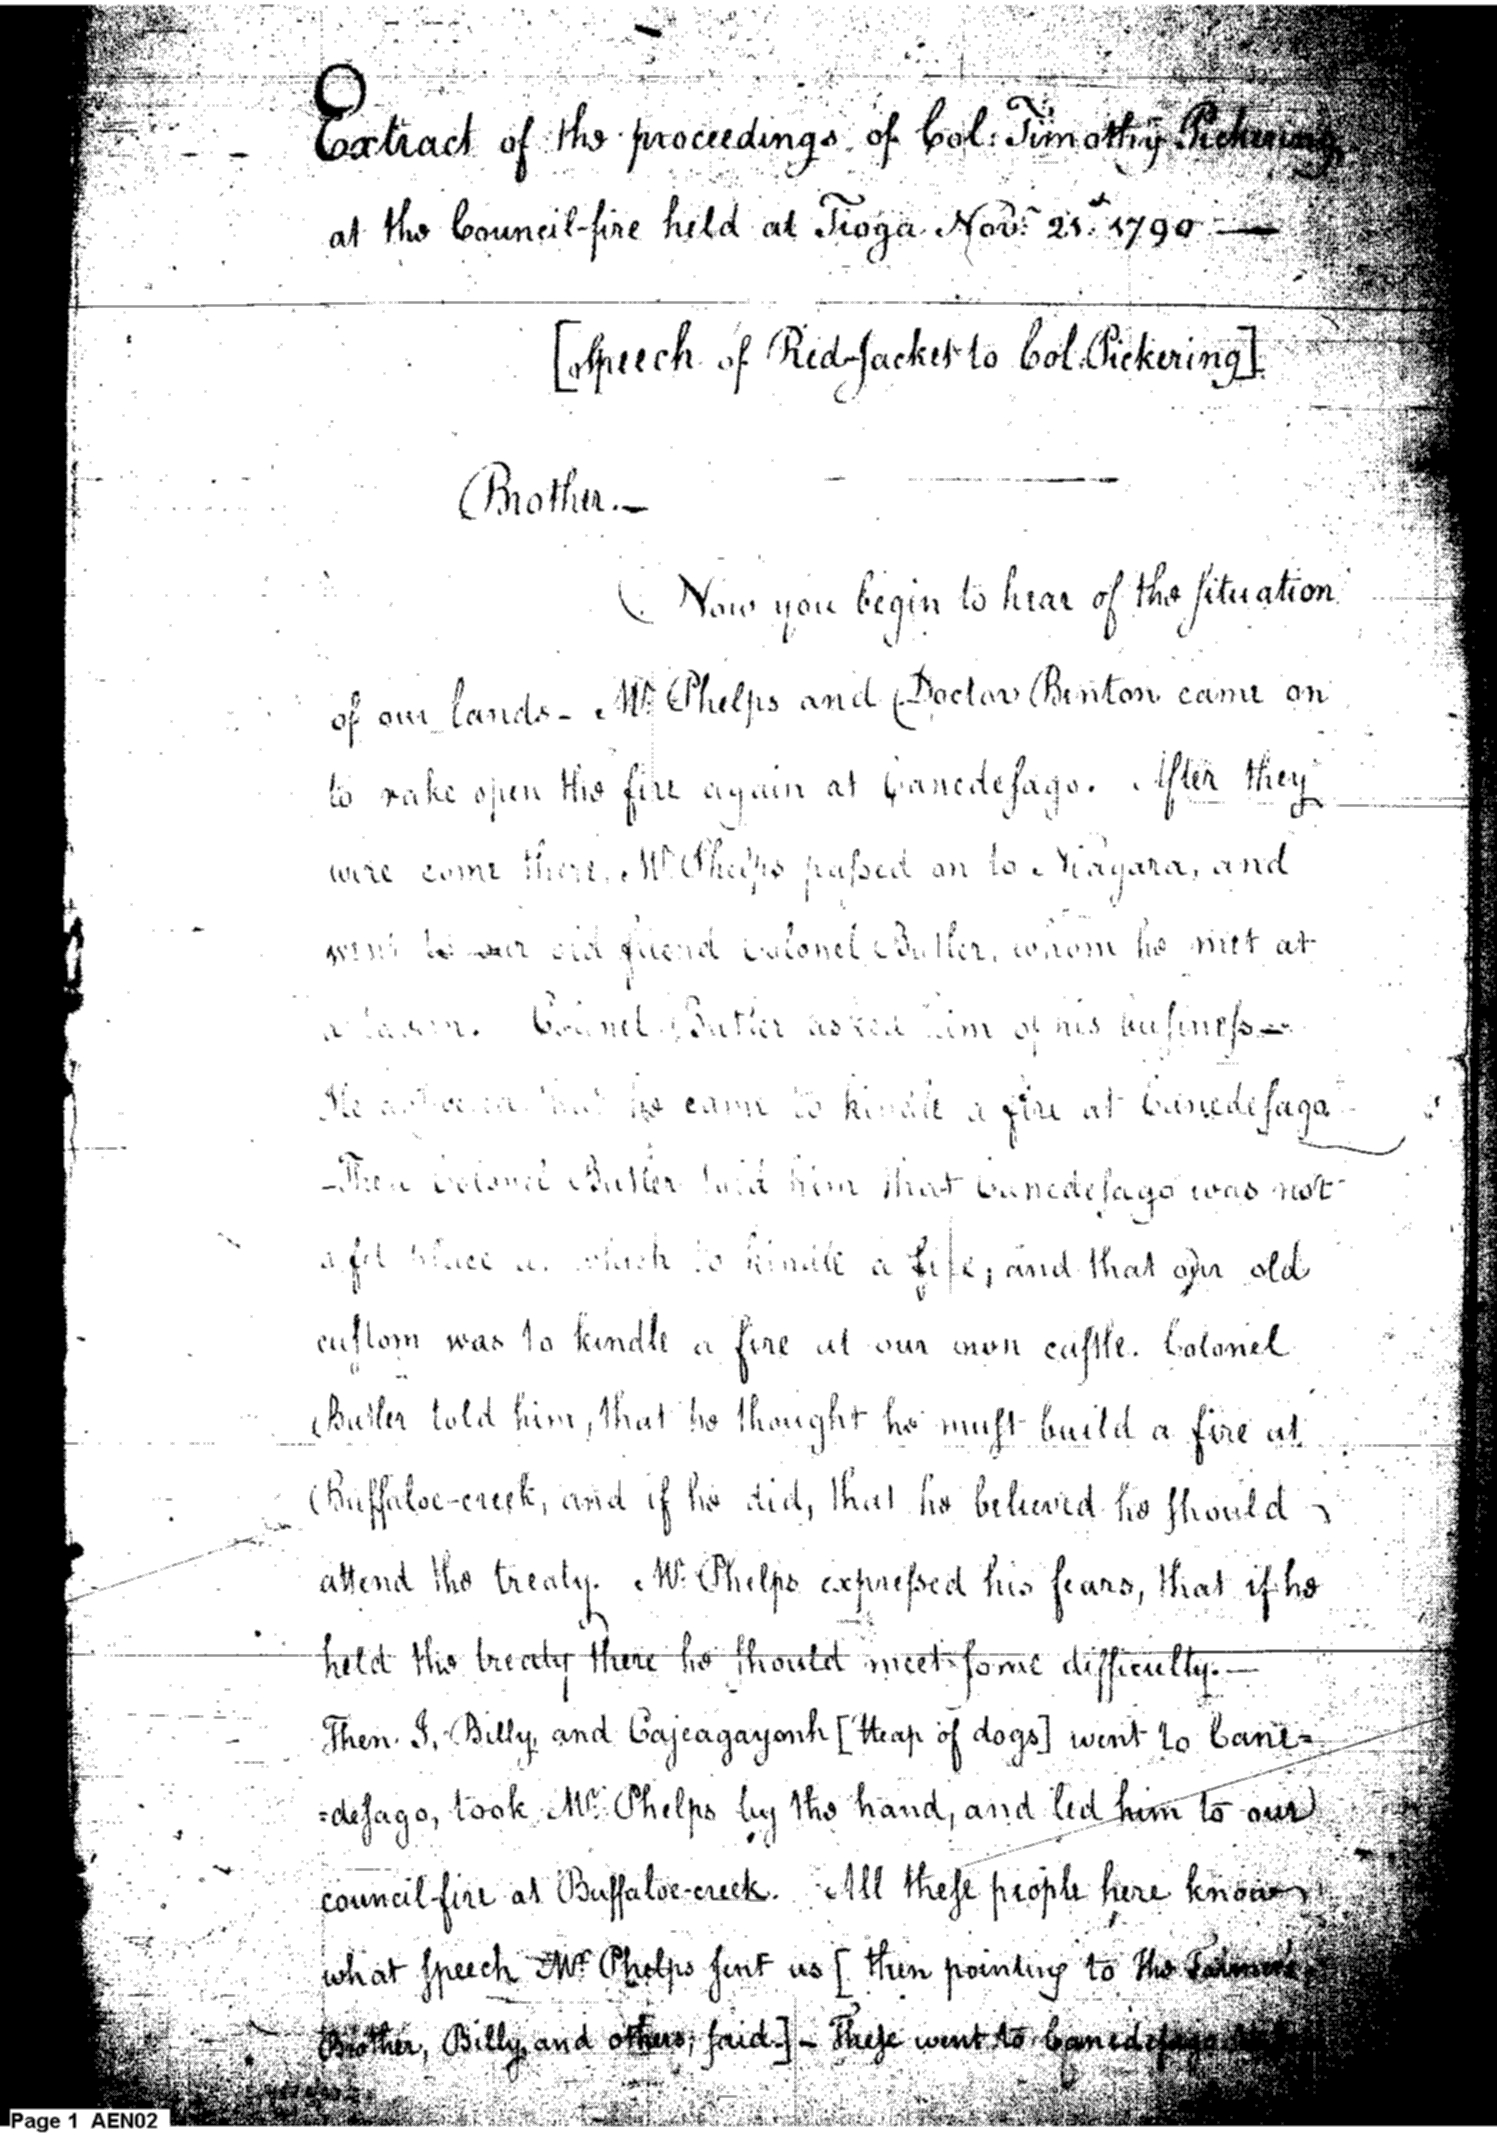 Extract of the proceedings of Col: Timothy Pickering
at the Council-fire held at Tioga Novr. 21st. 1790 —
[Speech of Red-Jacket to Col. Pickering]
Brother.—
Now you begin to hear of the situation
of our lands - Mr. Phelps and Doctor Benton came on
to rake open the fire again at Canedesago. After they
were come there, Mr. Phelps passed on to Niagara, and
went to our old friend Colonel Butler, whom he met at
a tavern. Colonel Butler asked him of his business —
He answered that he came to kindle a fire at Canedesago
- Then Colonel Butler told him that Canedesago was not
a fit place at which to kindle a fire; and that our old
custom was to kindle a fire at our own castle. Colonel
Butler told him, that he thought he must build a fire at
Buffaloe-creek, and if he did, that he believed he should
attend the treaty. Mr. Phelps expressed his fears, that if he
held the treaty there he should meet some difficulty. —
Then I, Billy, and Cajeagayonh [Heap of dogs] went to Cane=
=desago, took Mr. Phelps by the hand, and led him to our
council-fire at Buffaloe-creek. All these people here know
what speech Mr. Phelps sent us [then pointing to the Farmer's
Brother, Billy, and others, said.] - These went to Canedesago
Page 1 AEN02